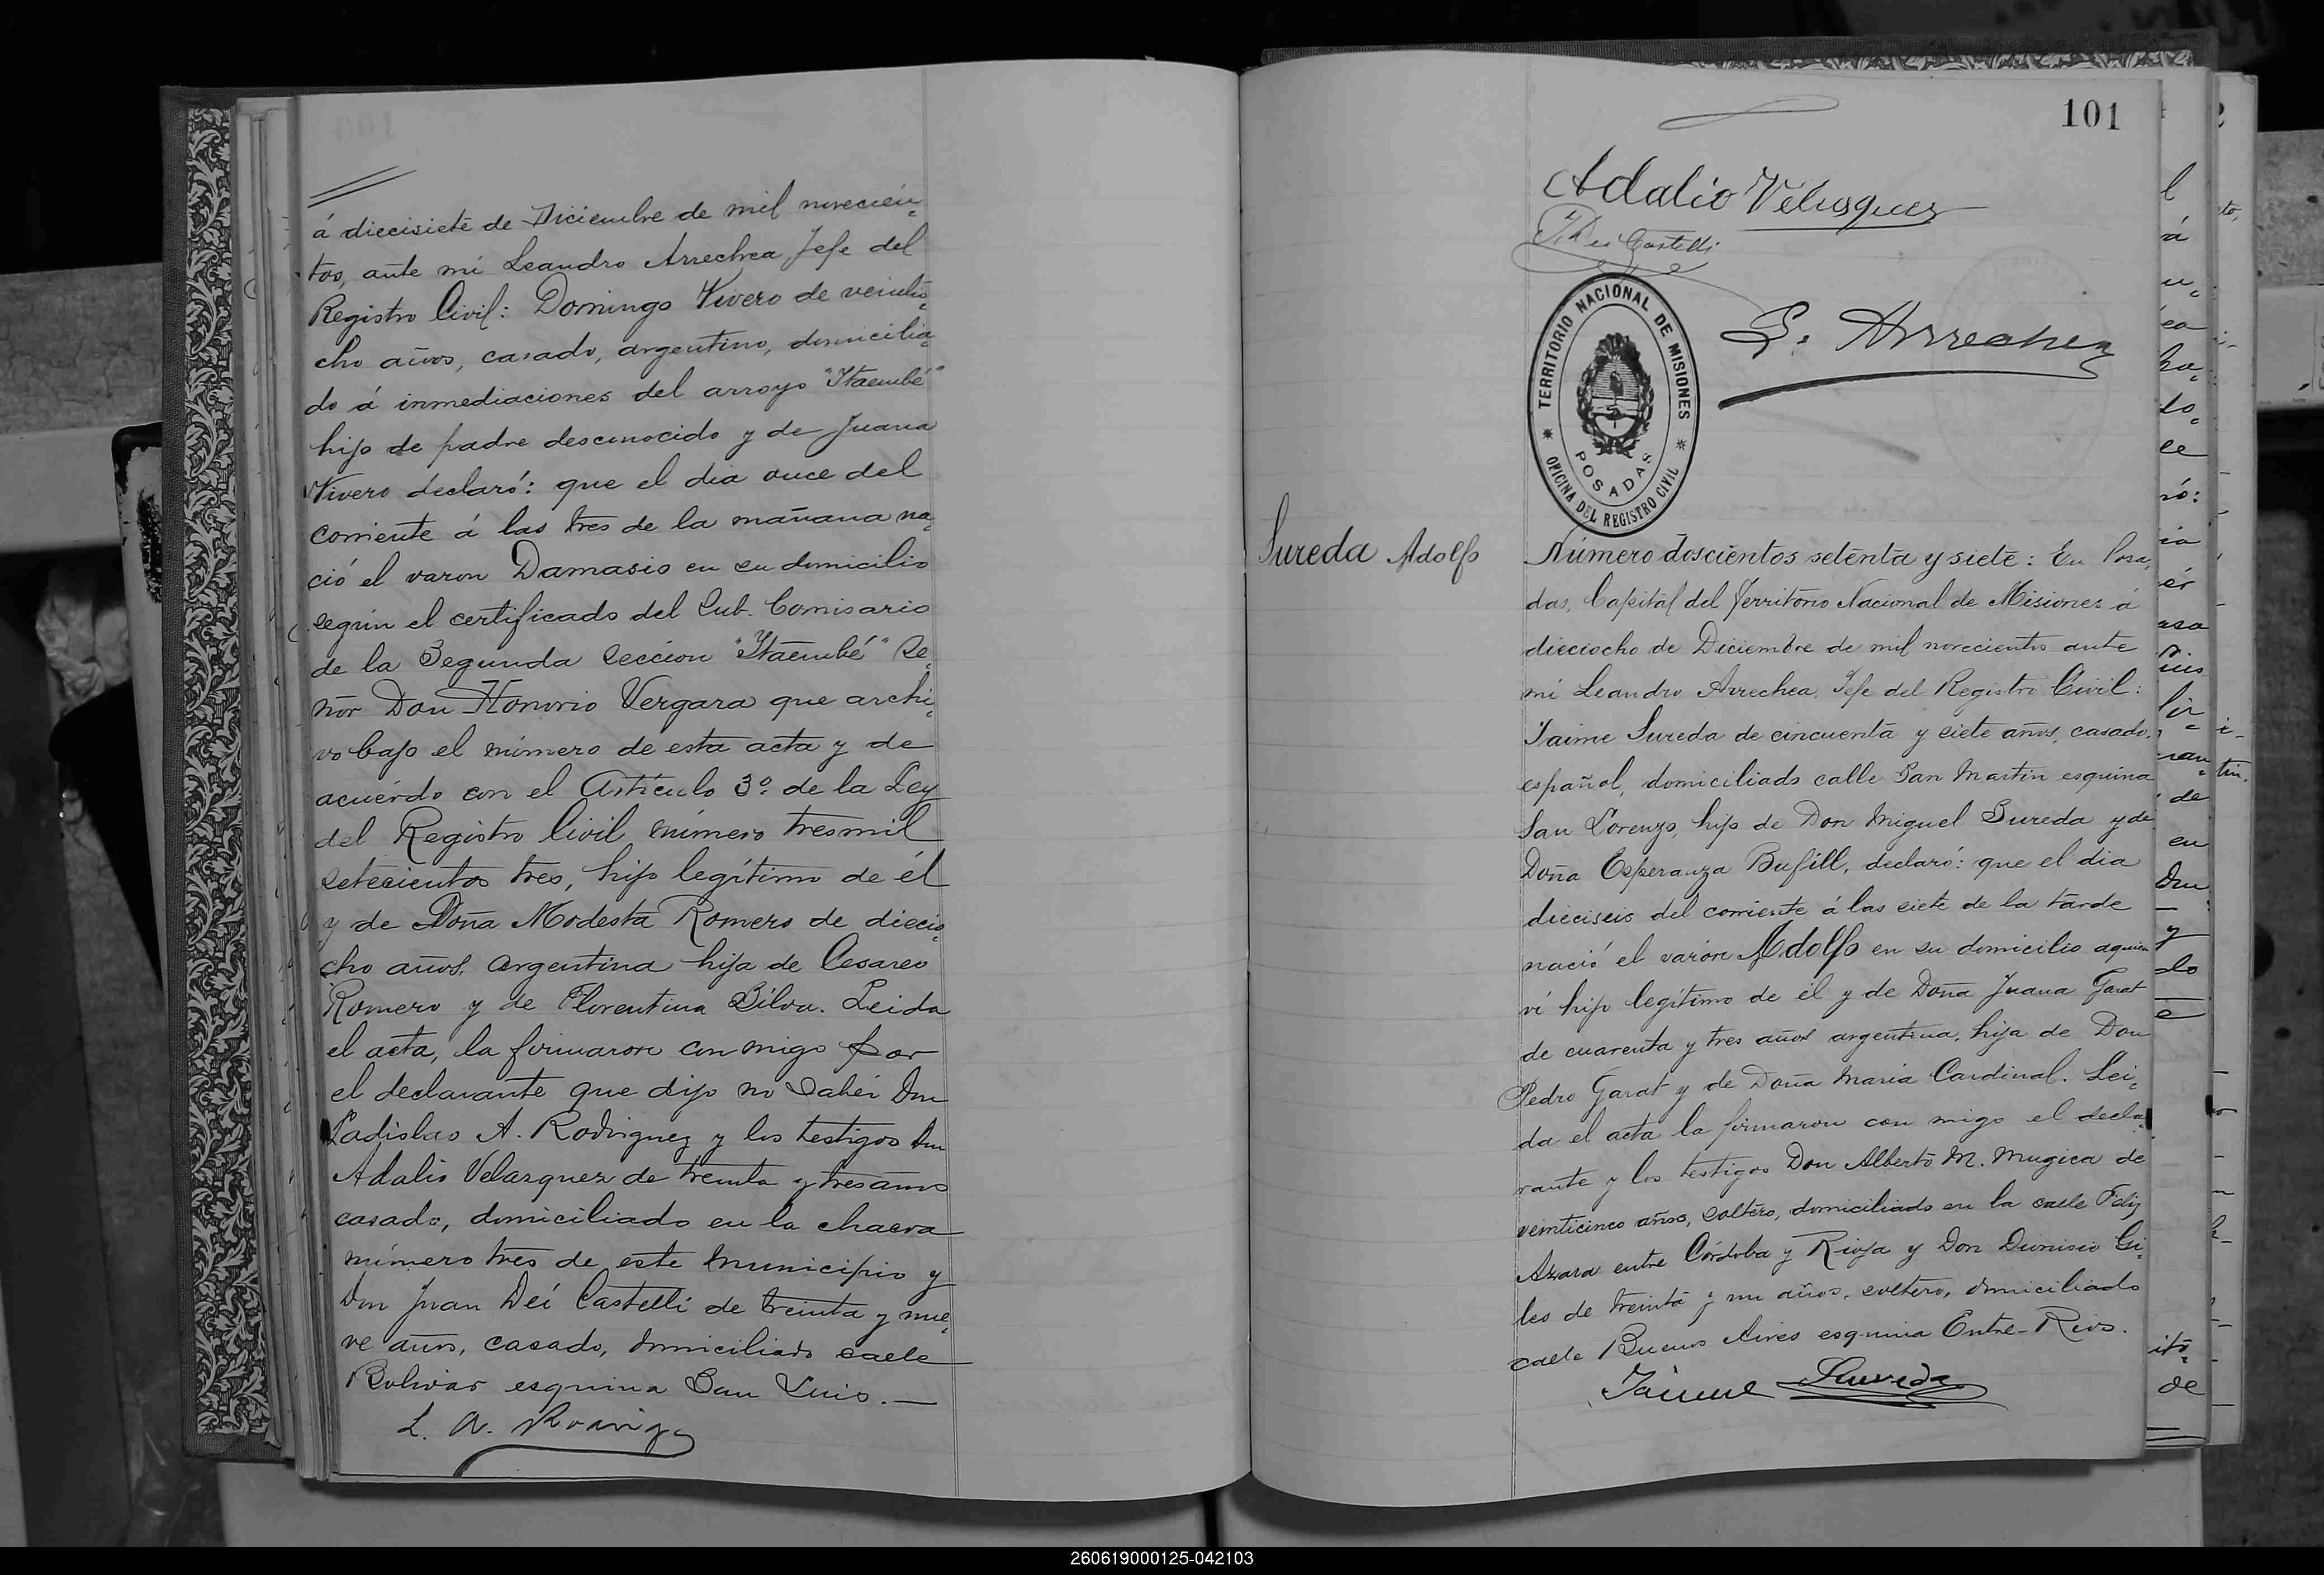 á diecisiete de Diciembre de mil novecien=
tos, ante mí Leandro Arrechea, Jefe del
Registro Civil: Domingo Vivero de veintio=
cho años, casado, argentino, domicilia=
do á inmediaciones del arroyo "Itaembé"
hijo de padre desconocido y de Juana
Vivero declaró: que el dia once del
corriente á las tres de la mañana na=
ció el varon Damasio en su domicilio
según el certificado del Sub. Comisario
de la Segunda Seccion "Itaembé" Se=
ñor Don Honorio Vergara que archi=
vo bajo el número de esta acta y de
acuérdo con el Artículo 3º de la Ley
del Registro Civil número tresmil
setecientos tres, hijo legítimo de él
y de Doña Modesta Romero de diecio=
cho años, argentina hija de Cesareo
Romero y de Florentina Silva. Leida
el acta, la firmaron con migo por
el declarante que dijo no saber Don
Ladislao A. Rodriguez y los testigos Don
Adalio Velazquez de treinta y tres años
casado, domiciliado en la chacra
número tres de este Municipio y
Don Juan Dei Castelli de treinta y nue=
ve años, casado, domiciliado calle
Bolivar esquina San Luis.—
L. A. Rodrig
101
Adalio Velasquez
Dei Castelli
L. Arrechea
TERRITORIO NACIONAL DE MISIONES
POSADAS
OFICINA DEL REGISTRO CIVIL
Sureda Adolfo
Número doscientos setenta y siete: En Posa=
das, Capital del Territorio Nacional de Misiones á
dieciocho de Diciembre de mil novecientos ante
mí Leandro Arrechea, Jefe del Registro Civil:
Jaime Sureda de cincuenta y siete años, casado,
español, domiciliado calle San Martin esquina
San Lorenzo, hijo de Don Miguel Sureda y de
Doña Esperanza Bufill, declaró: que el dia
dieciseis del corriente á las siete de la tarde
nació el varon Adolfo en su domicilio aquien
ví hijo legítimo de él y de Doña Juana Garat
de cuarenta y tres años argentina, hija de Don
Pedro Garat y de Doña María Cardinal. Lei=
da el acta la firmaron con migo el decla=
rante y los testigos Don Alberto M. Mugica de
veinticinco años, soltero, domiciliado en la calle Feliz
Azara entre Córdoba y Rioja y Don Dionisio Gi=
les de treinta y un años, soltero, domiciliado
calle Buenos Aires esquina Entre-Rios.
Jaime Sureda
260619000125-042103